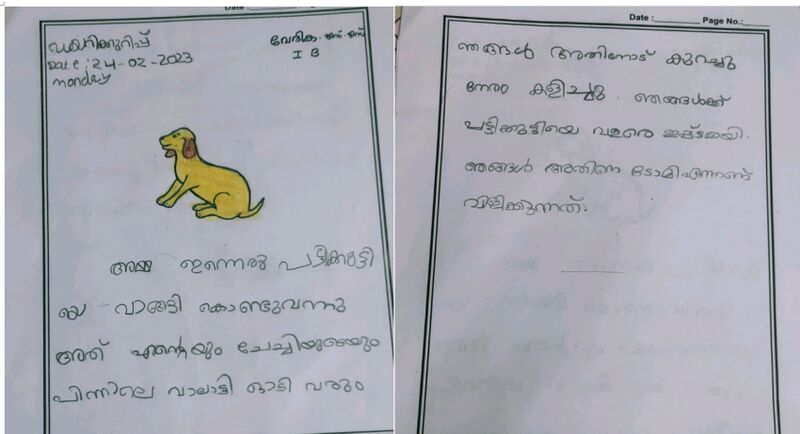 Date :
ഡയറിക്കുറിപ്പ്
Date : 24-02-2023
monday
വേദിക. എസ്. എസ്
I B
അമ്മ ഇന്നൊരു പട്ടിക്കുട്ടി
യെ വാങ്ങി കൊണ്ടുവന്നു
അത് എന്റെയും ചേച്ചിയുടെയും
പിന്നാലെ വാലാട്ടി ഓടി വരും
Date : Page No.:
ഞങ്ങൾ അതിനോട് കുറച്ചു
നേരം കളിച്ചു. ഞങ്ങൾക്ക്
പട്ടിക്കുട്ടിയെ വളരെ ഇഷ്ടമായി.
ഞങ്ങൾ അതിനെ ടോമി എന്നാണ്
വിളിക്കുന്നത്.